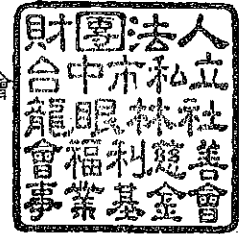 財團法人
台中市私立
龍眼林社
會福利慈善
事業基金會
會